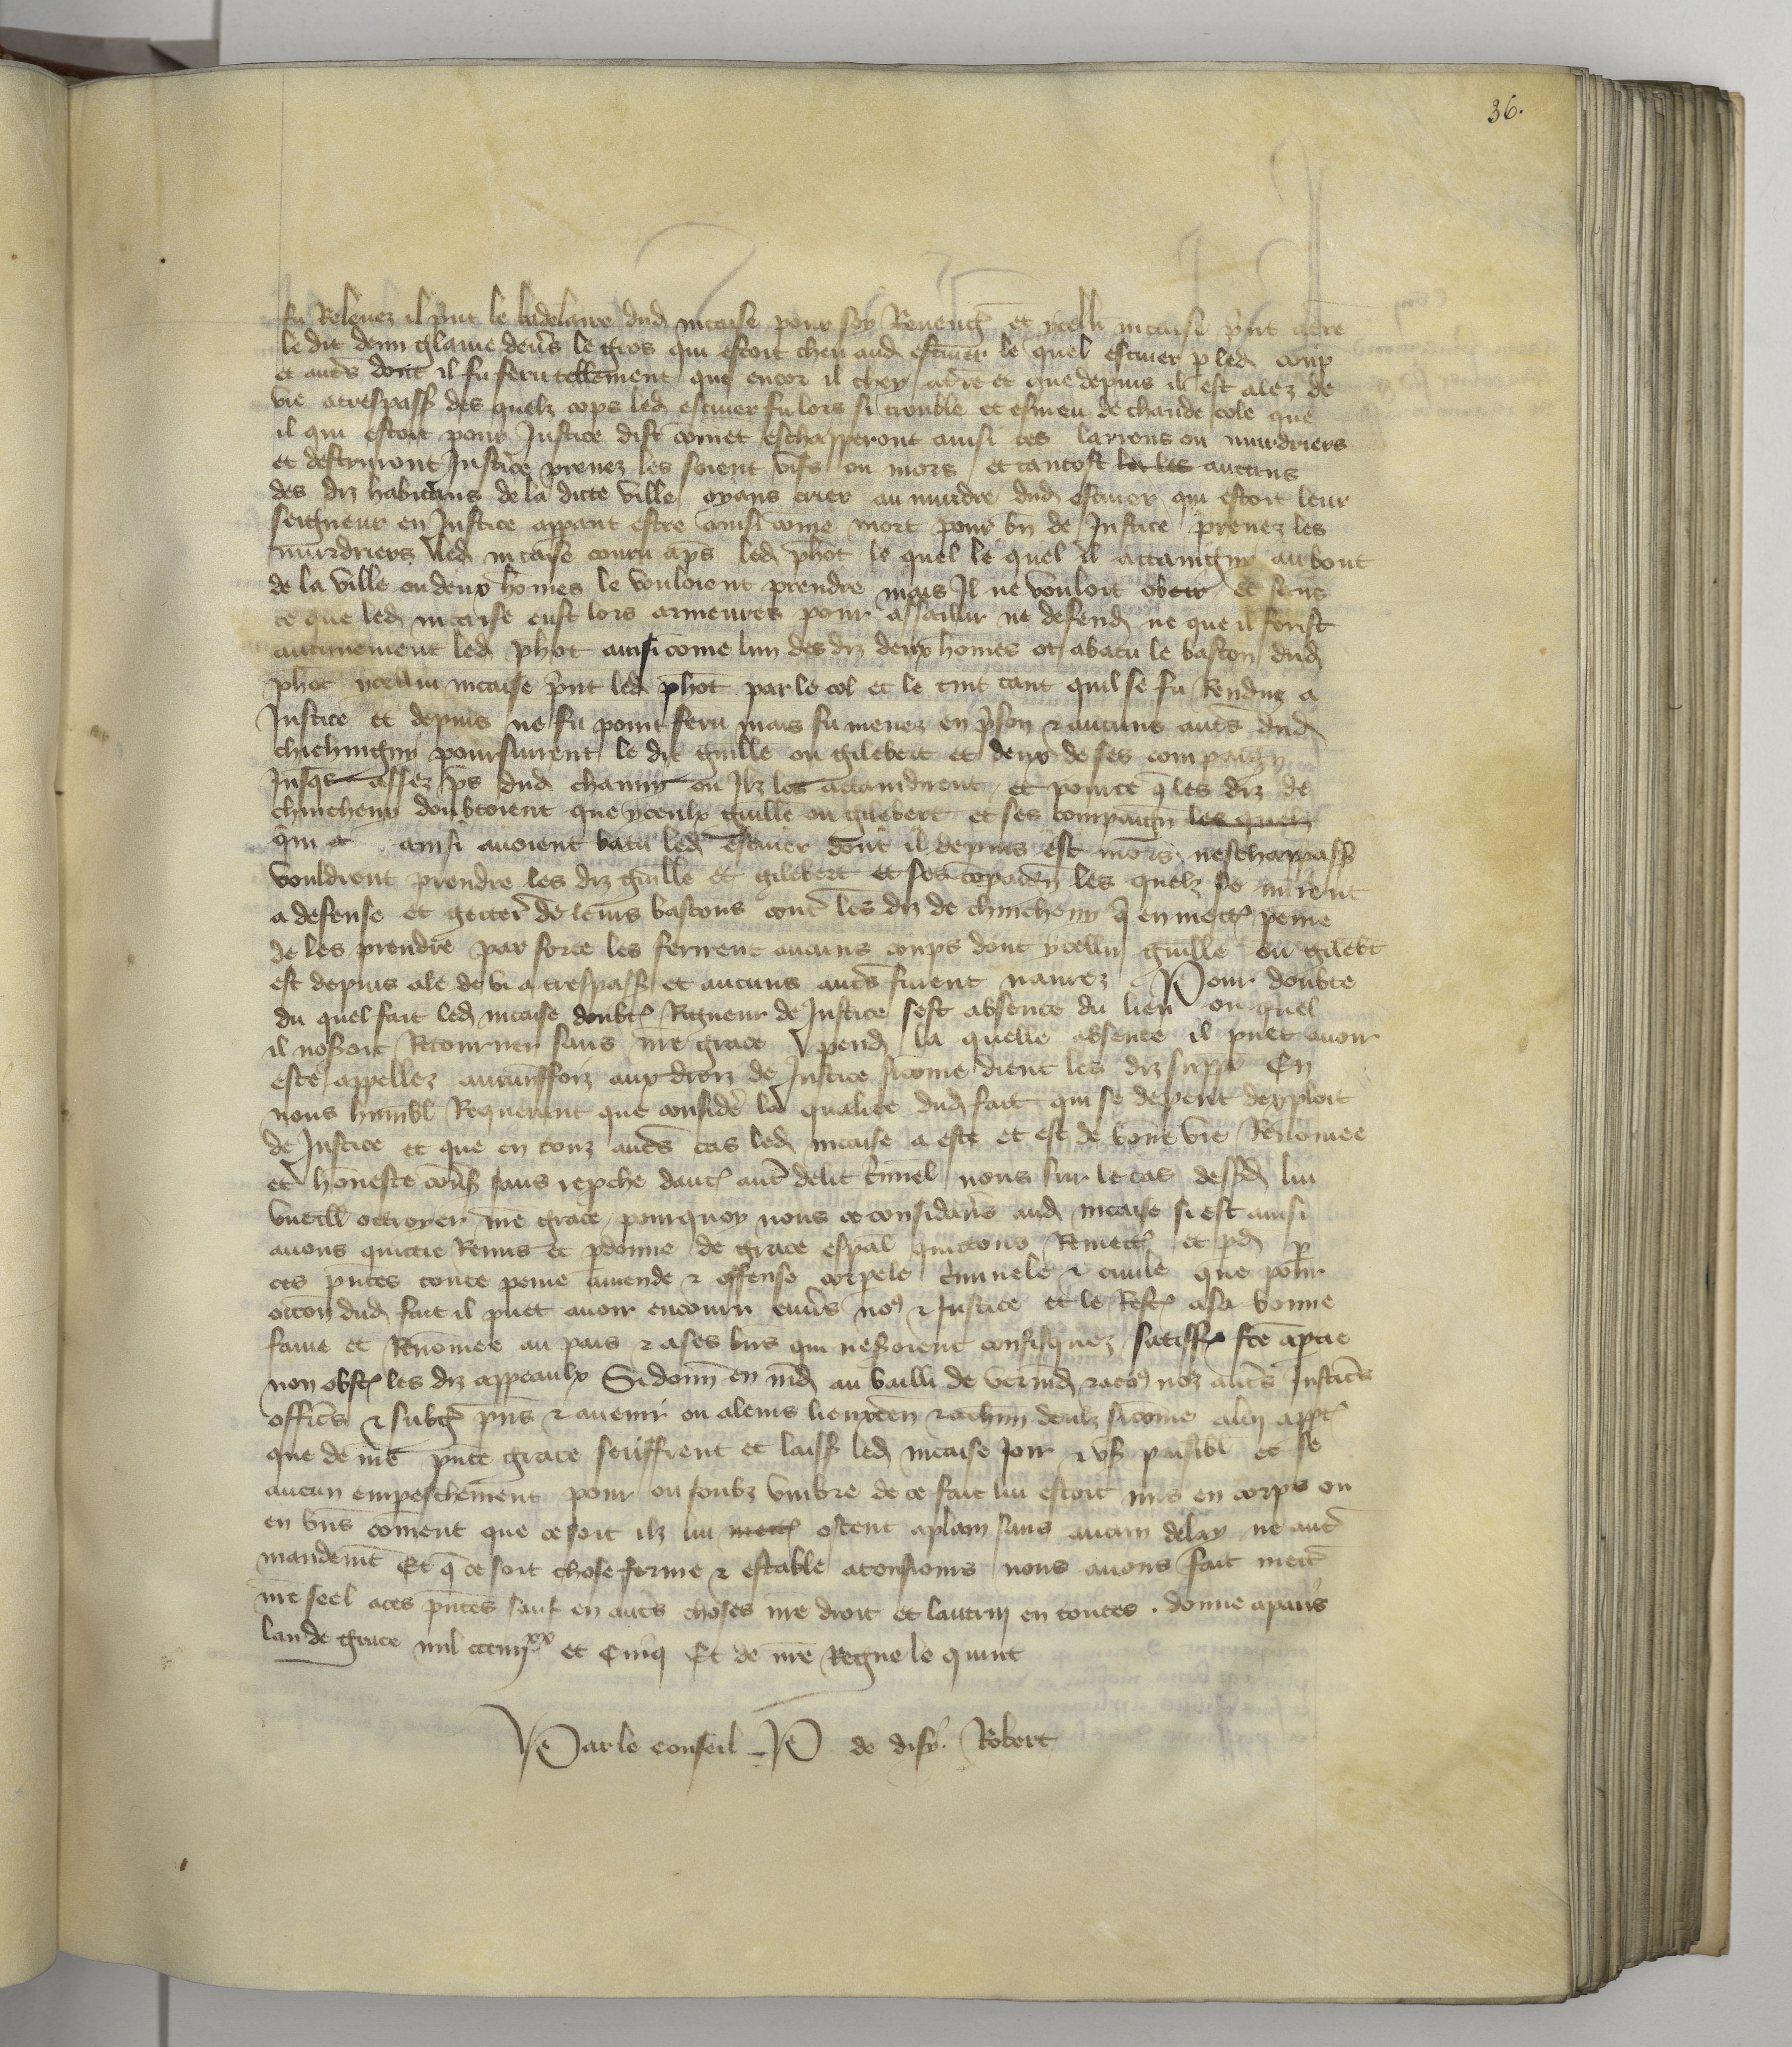 36.
fu Relevez il p̃nt le badelaire dud. nicaise pour soy Revengr̃ et ycelli nicaise p̃nt a t̃re
le dit demi glaive dev̾s le gros qui estoit cheu aud. escuier le quel escuier p led. coup
et autr̃s dont il fu feru tellement que encor il chey a t̃re et que depuis il est alez de
vie a trespass des quelz cops led. escuier fu lors si trouble et esmeu de chaude cole que
il qui estoit pour Justice dist com̃et eschapperont ainsi ces larrons ou murdriers
et destruiront Justice prenez les soient vifs ou mors et tantost les les aucuns
des diz habitans de la dicte ville oyans crier au murdre dud. escuier qui estoit leur
seigneur en Justice appant estre ainsi com̃e mort pour bñ de Justice prenez les
murdriers led. nicaise couru ap̃s led. phõt le quel le quel il attaingny au bout
de la ville ou deux hom̃es le vouloient prendre mais Il ne vouloit obeir et sans
ce que led. nicaise eust lors armeures pour assaillir ne defend. ne que il ferist
aucunement led. phõt ainsi com̃e lun des diz deux hom̃es ot abatu le baston dud.
phõt ycellui nicaise p̃nt led. phõt par le col et le tint tant quil se fu Renduz a
Justice et depuis ne fu point feru mais fu menez en p̃son ⁊ aucuns autr̃s dud.
chichingny poursuirent le dit guill̃e ou gilebert et deux de ses compaign̄
Jusq̃s assez p̃s dud. chauny ou Ilz les attaindirent et pource q̃ les diz de
chincheny doubtoient que yceulx guill̃e ou gilebert et ses compaign̄ les quelz
qui a ainsi avoient batu led. escuier dont il depuis est mors neschappass
vouldrent prendre les diz guill̃e et gilebert et ses cõpaign̄ les quelz se mirent
a defense et getter̃ de leurs bastons contr̃ les diz de chincheny q̃ en mettr̃ peine
de les prendre par force les ferirent aucuns coups dont ycellui guill̃e ou gileb̃t
est depuis ale de vi a trespass et aucuns autr̃s furent navrez Pour doubte
du quel fait led. nicaise doubtr̃ Rigueur de Justice sest absente du lieu ou quel
il noseroit Retourner sans nr̃e grace pend. la quelle absence il puet avoir
este appellez aucuneffoiz aux droiz de Justice sicom̃e dient les diz supp̃l En
nous humbl̃ Requerant que consider̃ la qualite dud. fait qui se depent dexploit
de Justice et que en touz autr̃s cas led. nicaise a este et est de bone vie Renom̃ee
et honneste conv̾s sans repche dautr̃ autr̃ delit c̃minel nous sur le cas dessd. lui
vueill̃ ottroyer nr̃e grace pourquoy nous ce considerans aud. nicaise si est ainsi
avons quittie Remis et pdonne de grace esp̃al quittons Remettr̃ et pd. p
ces p̃ntes toute peine amende ⁊ offense corpele c̃minele ⁊ civile que pour
occon̄ dud. fait il puet avoir encouru env̾s no⁹ ⁊ Justice et le Restr̃ a sa bonne
fame et Renom̃ee au pais ⁊ a ses biẽs qui ne seroient confisquez satiss⁹ fc̃e a ptie
non obst̃ les diz appeaulx Si donn̄ en md. au bailli de vermd. ⁊ a to⁹ noz autr̃s Justic̃s
offic̃s ⁊ subgr̃ p̃ns ⁊ avenir ou a leurs lieuxten̄ ⁊ a chun̄ deulz sicom̃e a lui apptr̃
que de nr̃e p̃nte grace seuffrent et laiss led. nicaise Joir ⁊ us paisibl̃ et se
aucun empeschement pour ou soubz umbre de ce fait lui estoit mis en corps ou
en biẽs com̃ent que ce soit ilz lui mettr̃ ostent a plain sans aucun delay ne autr̃
mandem̃t Et q̃ ce soit chose ferme ⁊ estable a tousiours nous avons fait mettr̃
nr̃e seel a ces p̃ntes sauf en autr̃s choses nr̃e droit et lautruy en toutes. donne a paris
lan de grace mil ccciiijˣˣ et Cinq Et de nr̃e Regne le quint
Par le conseil P. de disy. Robert